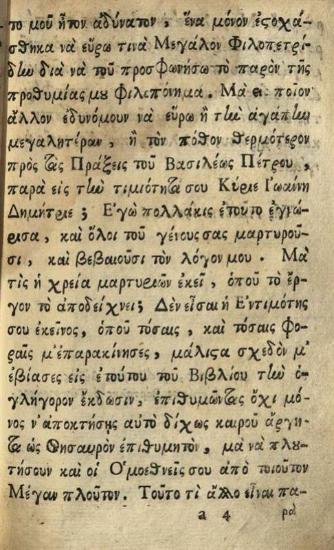 το μοῦ ἦτον ἀδύνατον, ἕνα μόνον ἐςοχά-
σθηκα νὰ εὕρω τινὰ Μεγάλον Φιλοπετρί-
δην διὰ νὰ τοῦ προσφωνήσω τὸ παρὸν τῆς
προθυμίας μου φιλοπόνημα. Μὰ ποῖον
ἄλλον ἐδυνόμουν νὰ εὕρω ἢ τὴν ἀγάπην
μεγαλητέραν, ἢ τὸν πόθον θερμότερον
πρὸς τὰς Πράξεις τοῦ Βασιλέως Πέτρου,
παρὰ εἰς τὴν τιμιότητά σου Κύριε Γιωάνη
Δημήτριε; Ἐγὼ πολλάκις ἐτοῦτο ἐγνώ-
ρισα, καὶ ὅλοι τοῦ γένους σας μαρτυροῦ-
σι, καὶ βεβαιοῦσι τὸν λόγον μου. Μὰ
τίς ἡ χρεία μαρτυριῶν ἐκεῖ, ὁποῦ τὸ ἔρ-
γον τὸ ἀποδείχνει; Δὲν εἶσαι ἡ Ἐντιμότης
σου ἐκεῖνος, ὁποῦ τόσαις, καὶ τόσαις φο-
ραῖς μ' ἐπαρακίνησες, μάλιςα σχεδὸν μ'
ἐβίασες εἰς ἐτούτου τοῦ Βιβλίου τὴν ὀ-
γλήγορον ἔκδωσιν, ἐπιθυμῶντας ὄχι μό-
νος ν' ἀποκτήσῃς αὐτὸ δίχως καιροῦ ἄργη-
τα ὡς θησαυρὸν ἐπιθυμητὸν, μὰ νὰ πλου-
τήσουν καὶ οἱ Ὁμοεθνεῖς σου ἀπὸ τοιοῦτον
Μέγαν πλοῦτον. Τοῦτο τί ἄλλο εἶναι πα-
a 4 ρὰ